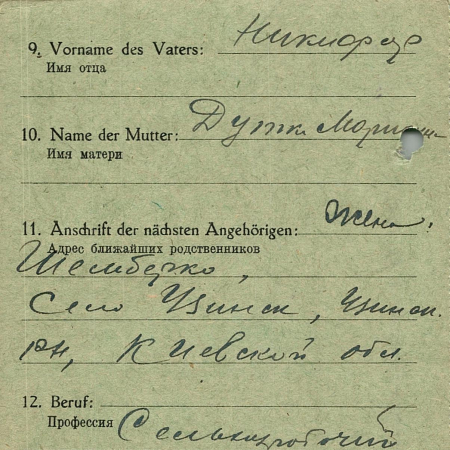 9. Vorname des Vaters: Никифор
Имя отца
10. Name der Mutter: Дутк
Имя матери
11. Anschrift der nächsten Angehörigen: Жена.
Адрес ближайших родственников
Шемберко,
село Узинск, Узинск.
рн, Киевской обл.
12. Beruf:
Профессия Сельхозрабочий